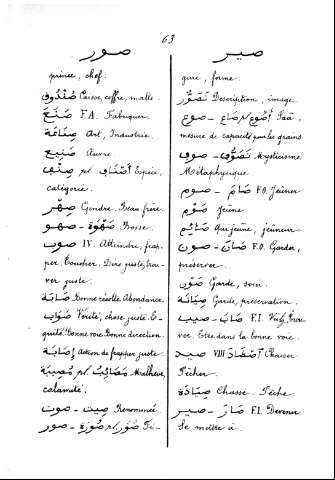 63
صور
prince, chef.
صُنْدُوق Caisse, coffre, malle.
صَنَعَ F.A. Fabriquer.
صِنَاعَة Art, Industrie.
صَنِيع Œuvre
صِنْف pl. أَصْنَاف Espèce,
catégorie.
صِهْر Gendre. Beau frère.
صهو - صَهْوَة Bosse
صوب IV. Atteindre, frap-
per. Toucher. Dire juste, trou-
ver juste.
صَابَة Bonne récolte. Abondance.
صَوَاب Vérité, chose juste. E-
quité. Bonne voie. Bonne direction.
إِصَابَة Action de frapper juste.
مُصِيبَة pl. مَصَائِب Malheur,
calamité.
صوت - صِيت Renommée
صور - صُورَة pl. صُوَر Fi-
صير
gure, forme.
تَصَوُّر Description, image.
صوع - صَاع pl. أَصْوُع Saâ,
mesure de capacité pour les grains.
صوف - تَصَوُّف Mysticisme
Métaphysique.
صوم - صَامَ F.O. Jeûner
صَوْم Jeûne.
صَائِم Qui jeûne, jeûneur
صون - صَانَ F.O. Garder,
préserver.
صَوْن Garde, soin.
صِيَانَة Garde, preservation.
صيب - صَابَ F.I.
ver. Etre dans la bonne voie.
صيد VIII Chasser.
Pêcher.
صِيَادَة Chasse. Pêche.
صير - صَارَ F.I. Devenir
Se mettre à.